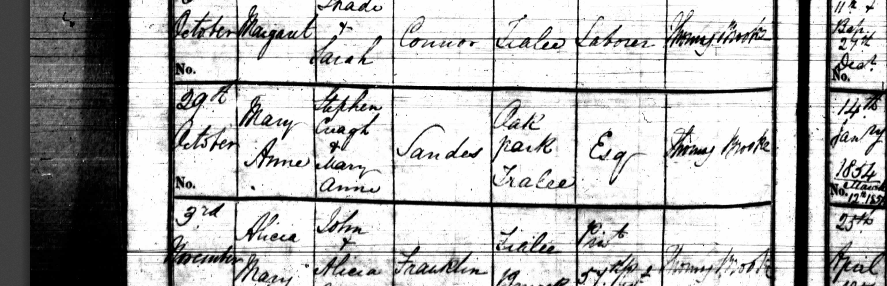 October Margaret & Sarah Connor Tralee Laborer Thomas Brooke
No.
29th October Mary Anne Stephen Creagh & Mary Anne Sandes Oak park Tralee Esq Thomas Brooke
No.
3rd November Alicia Mary John & Alicia Franklin Tralee Thomas Brooke
11th &
Bap.
27th
Dec.
No.
14th
Jany
1854
No.
25th
April